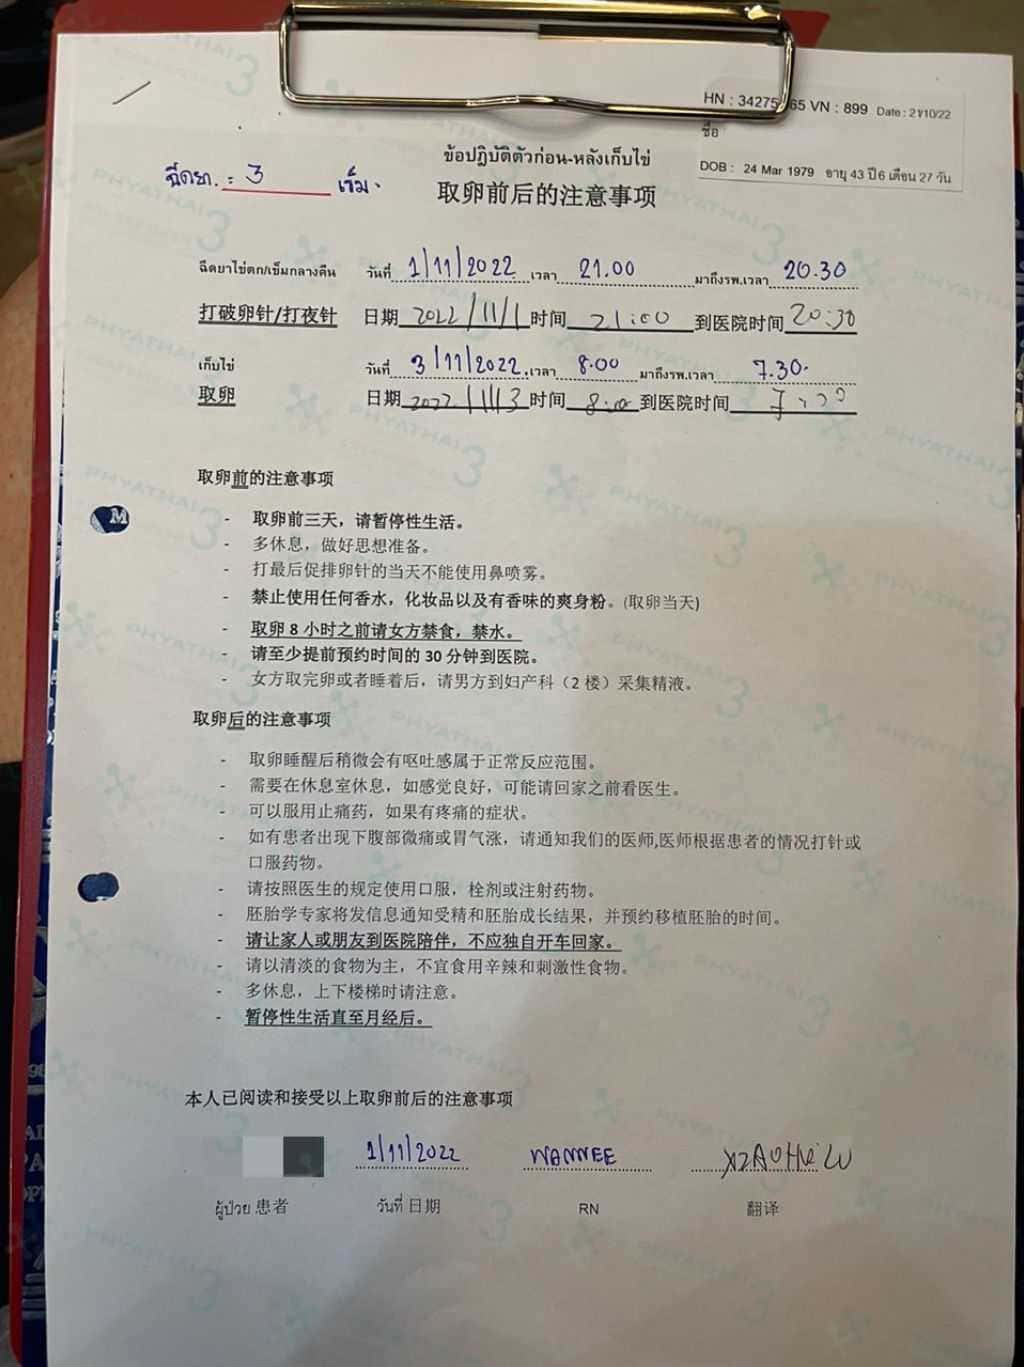 HN : 34275 65 VN : 899 Date : 21/10/22
ชื่อ
DOB : 24 Mar 1979 อายุ 43 ปี 6 เดือน 27 วัน
ข้อปฏิบัติตัวก่อน-หลังเก็บไข่
ฉีดยา. = 3 เข็ม.
取卵前后的注意事项
ฉีดยาไข่ตก/เข็มกลางคืน วันที่ 1/11/2022 เวลา 21.00 มาถึงรพ.เวลา 20.30
打破卵针/打夜针 日期 2022/11/1 时间 21:00 到医院时间 20:30
เก็บไข่ วันที่ 3/11/2022 เวลา 8.00 มาถึงรพ.เวลา 7.30.
取卵 日期 2022/11/3 时间 8:00 到医院时间
取卵前的注意事项
- 取卵前三天，请暂停性生活。
- 多休息，做好思想准备。
- 打最后促排卵针的当天不能使用鼻喷雾。
- 禁止使用任何香水，化妆品以及有香味的爽身粉。(取卵当天)
- 取卵 8 小时之前请女方禁食，禁水。
- 请至少提前预约时间的 30 分钟到医院。
- 女方取完卵或者睡着后，请男方到妇产科（2 楼）采集精液。
取卵后的注意事项
- 取卵睡醒后稍微会有呕吐感属于正常反应范围。
- 需要在休息室休息，如感觉良好，可能请回家之前看医生。
- 可以服用止痛药，如果有疼痛的症状。
- 如有患者出现下腹部微痛或胃气涨，请通知我们的医师,医师根据患者的情况打针或
口服药物。
- 请按照医生的规定使用口服，栓剂或注射药物。
- 胚胎学专家将发信息通知受精和胚胎成长结果，并预约移植胚胎的时间。
- 请让家人或朋友到医院陪伴，不应独自开车回家。
- 请以清淡的食物为主，不宜食用辛辣和刺激性食物。
- 多休息，上下楼梯时请注意。
- 暂停性生活直至月经后。
本人已阅读和接受以上取卵前后的注意事项
1/11/2022 WANNEE XIAOHEI LU
ผู้ป่วย 患者 วันที่ 日期 RN 翻译
PHYATHAI 3
M